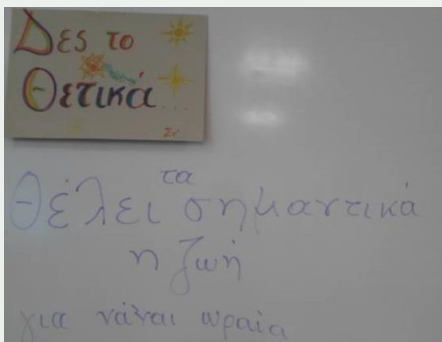 Δες το
Θετικά...
Θέλει τα σημαντικά
η ζωή
για νάναι ωραία